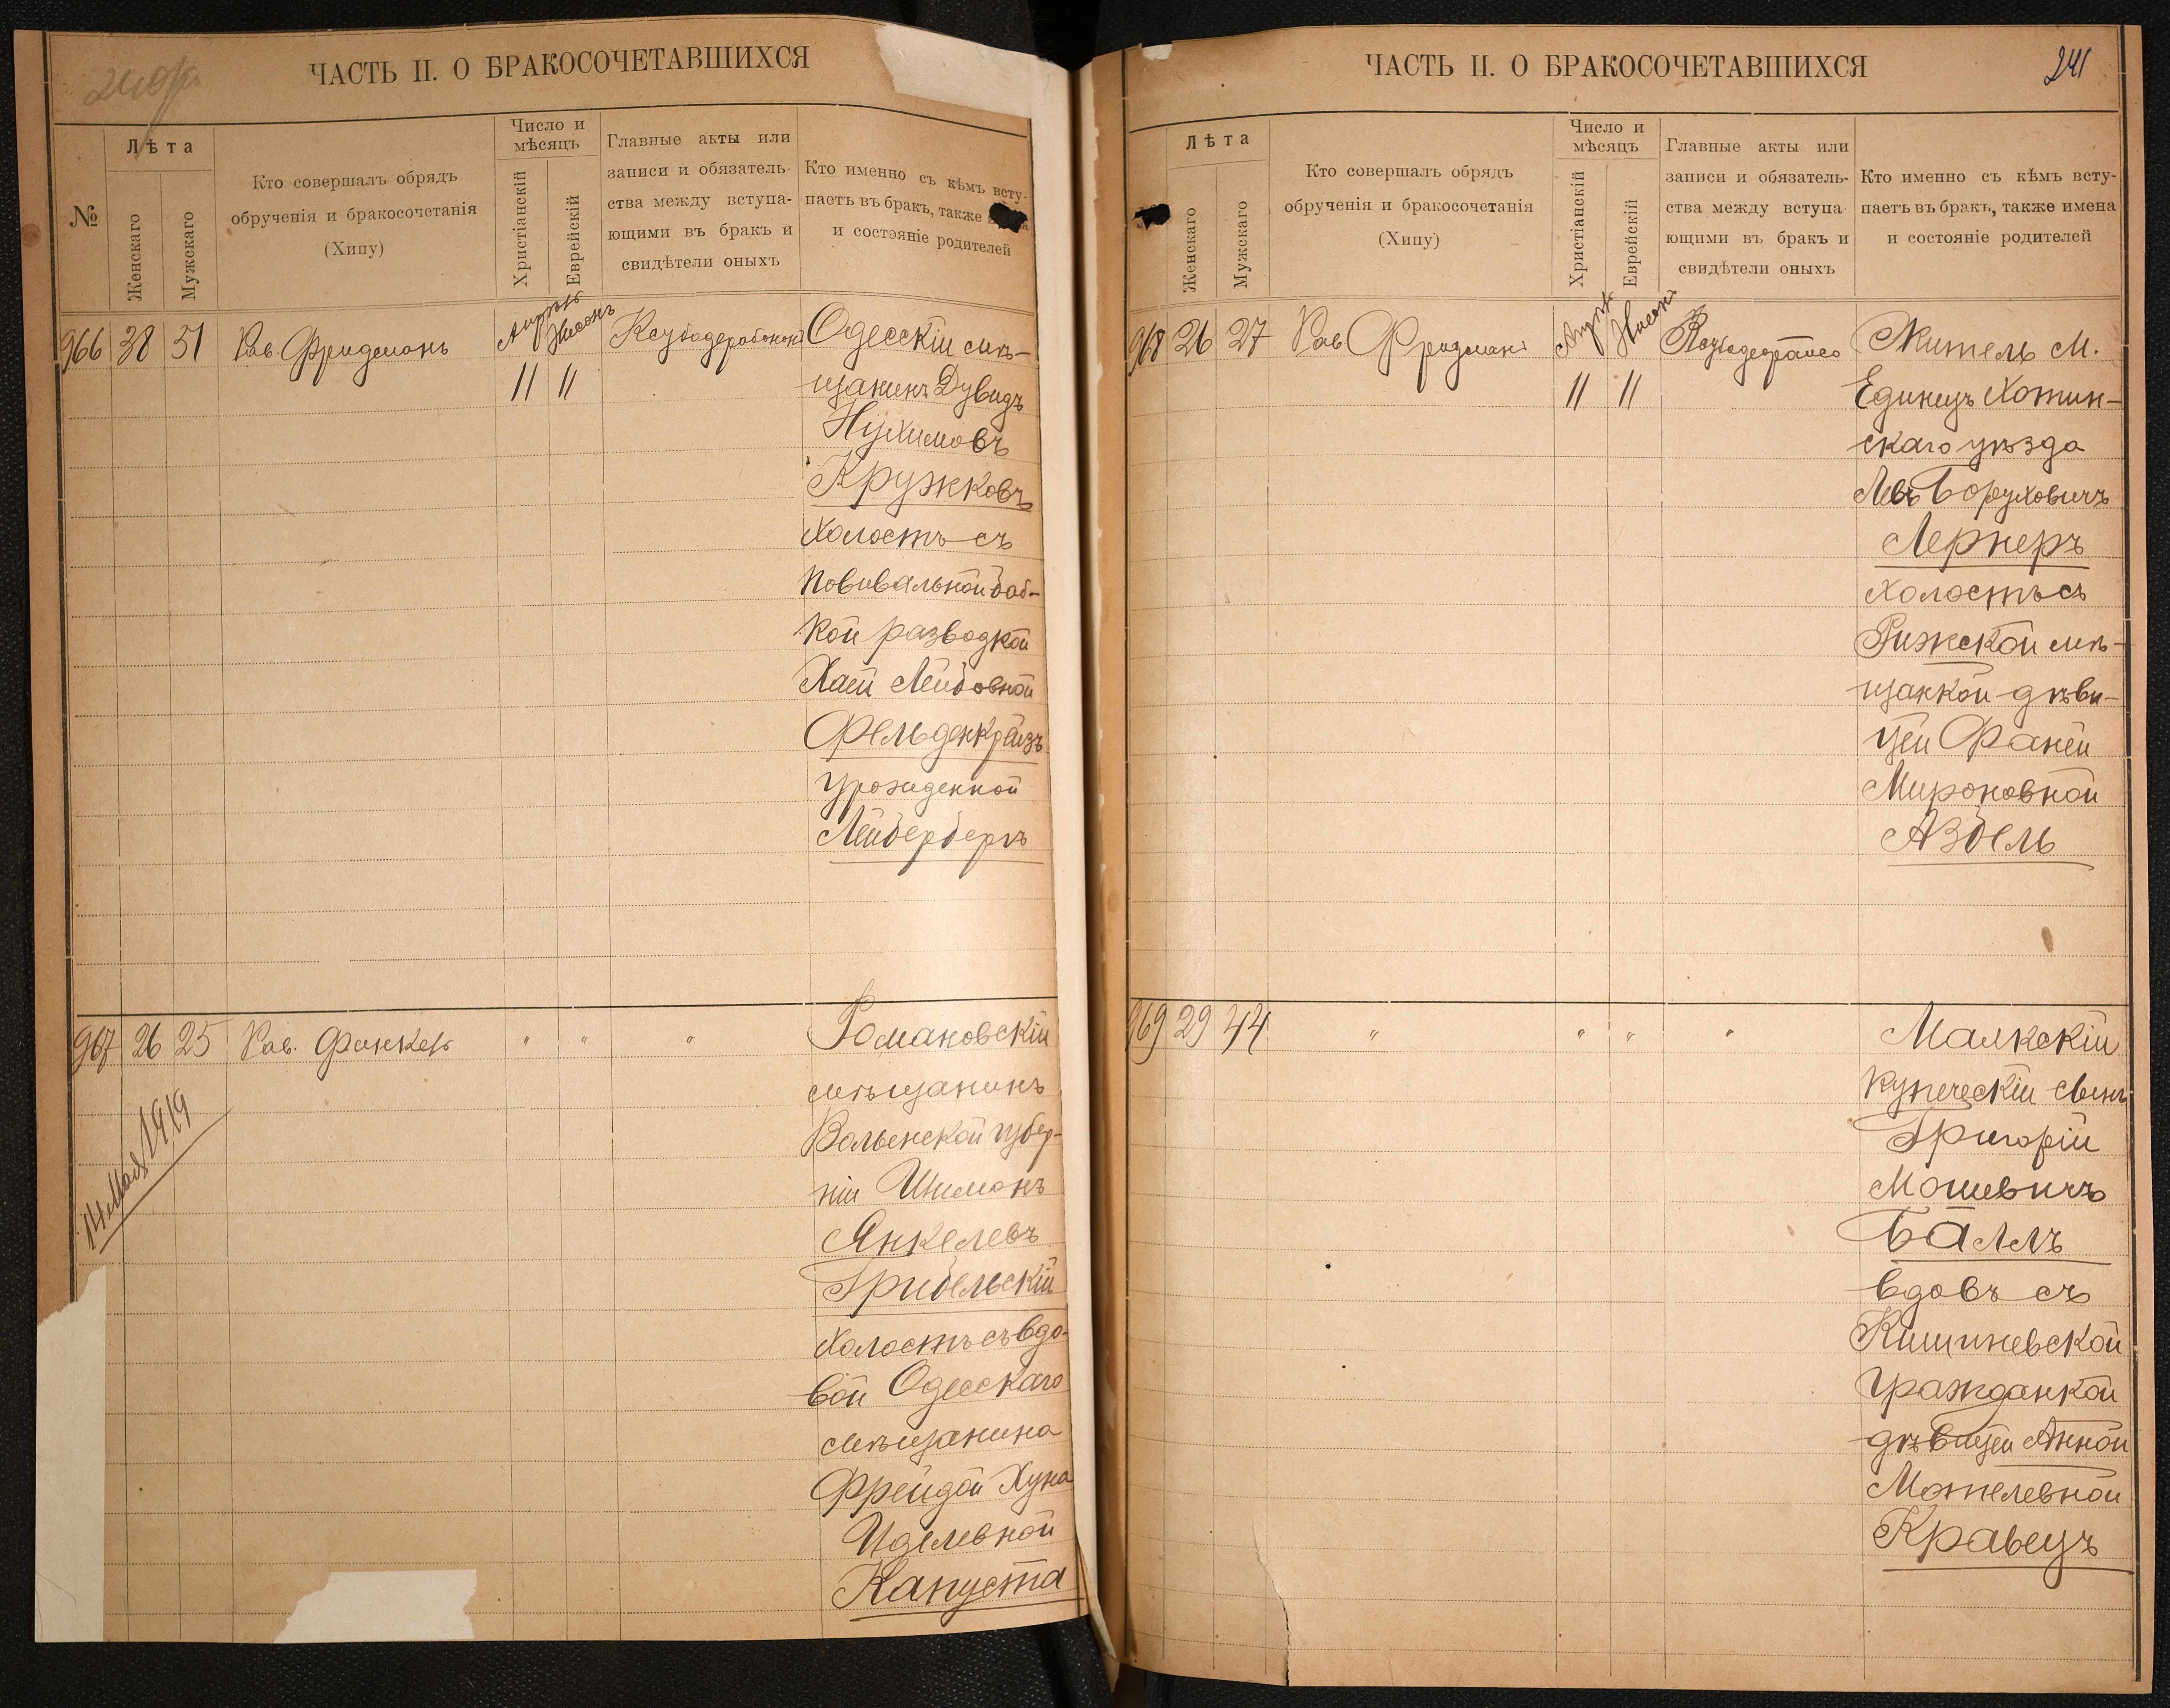 ЧАСТЬ II. О БРАКОСОЧЕТАВШИХСЯ
№
Лѣта
Женскаго
Мужскаго
Кто совершалъ обрядъ
обрученія и бракосочетанія
(Хипу)
Число и
мѣсяцъ
Христіанскій
Еврейскій
Главные акты или
записи и обязатель-
ства между вступа-
ющими въ бракъ и
свидѣтели оныхъ
Кто именно съ кѣмъ всту-
паетъ въ бракъ, также
и состояніе родителей
966 38 51 Рав. Фридманъ Апрѣль Нисонъ Одесскій мѣ-
11 11 щанинъ Дувидъ
Нухимовъ
Кружковъ
холостъ съ
повивальной баб-
кой разводкой
Хаей Лейбовной
Фельденкрейзъ
урожденной
Лейбербергъ
967 26 25 Рав. Финкель " " " Романовскій
14 Мая 1919
мѣщанинъ
Волынской губер-
ніи Шимонъ
Янкелевъ
Грибельскій
холостъ съ вдо-
вой Одесскаго
мѣщанина
Фрейдой Хуна
Иделевной
Капуста
ЧАСТЬ II. О БРАКОСОЧЕТАВШИХСЯ
241
Лѣта
Женскаго
Мужскаго
Кто совершалъ обрядъ
обрученія и бракосочетанія
(Хипу)
Число и
мѣсяцъ
Христіанскій
Еврейскій
Главные акты или
записи и обязатель-
ства между вступа-
ющими въ бракъ и
свидѣтели оныхъ
Кто именно съ кѣмъ всту-
паетъ въ бракъ, также имена
и состояніе родителей
968 26 27 Рав Фридманъ Апрѣль Нисонъ Житель м.
11 11 Единецъ Хотин-
скаго уѣзда
Левъ Боруховичъ
Лернеръ
холостъ съ
Рижской мѣ-
щанкой дѣви-
цей Фаней
Мироновной
Азбель
969 29 44 " " " " Маякскій
купеческій сынъ
Григорій
Мошевичъ
Баллъ
вдовъ съ
Кишиневской
гражданкой
дѣвицей Анной
Мотелевной
Кравецъ